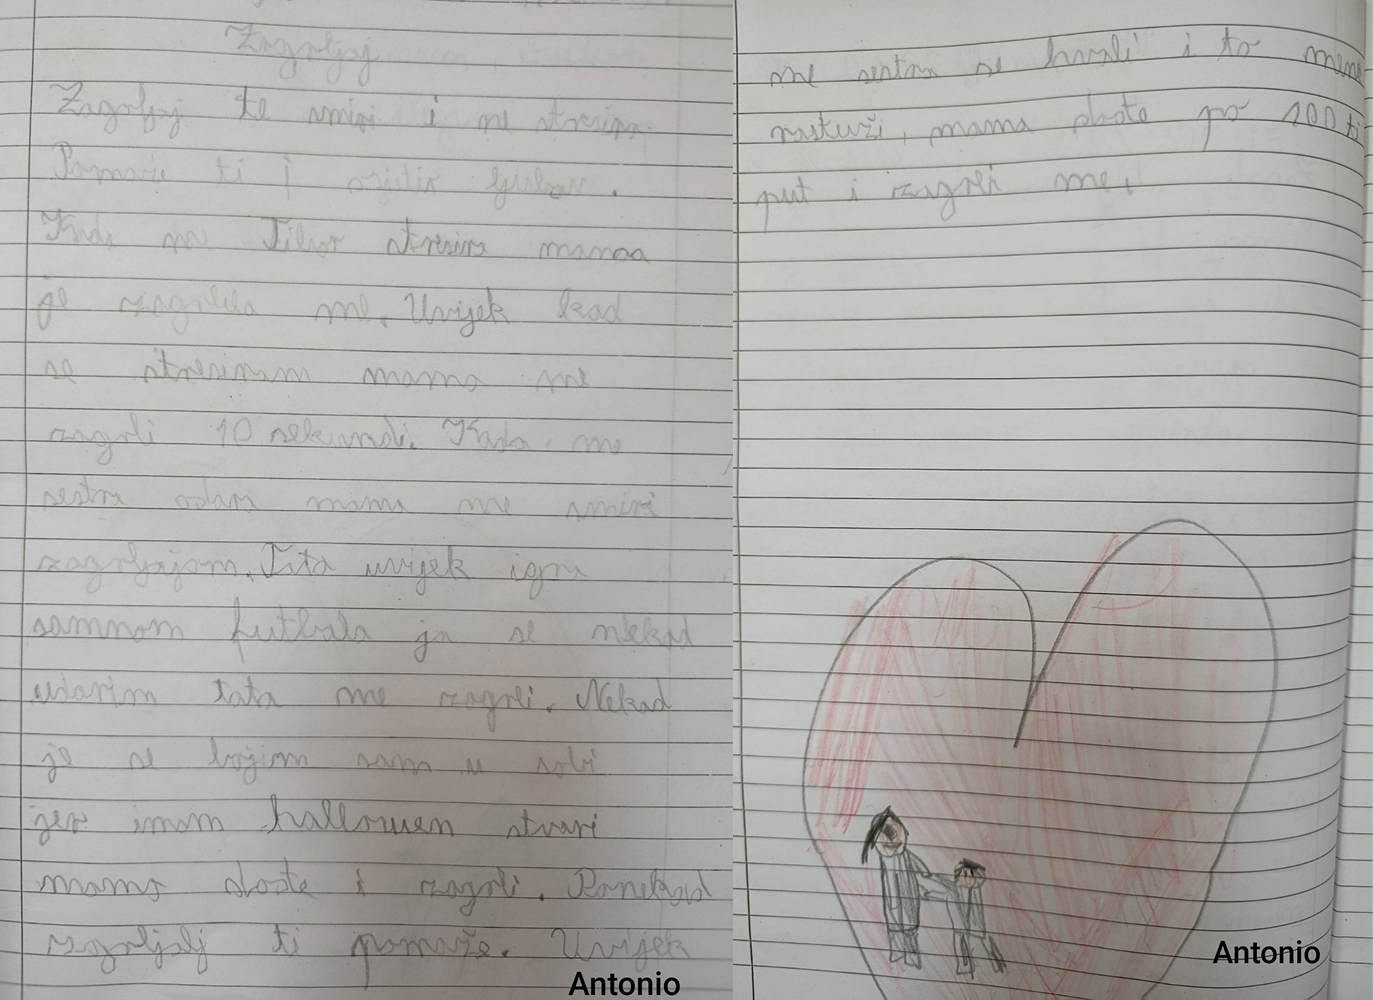 Zagrljaj
Zagrljaj te smiri i ne stresira.
Pomaže ti i osjetiš ljubav.
Kada me Tibor stresira mamaa
je zagrlila me. Uvijek kad
se stresiram mama me
zagrli 10 sekundi. Kada me
sestra udara mama me smiri
zagrljajom. Tata uvijek igra
samnom futbala ja se nekad
udarim tata me zagrli. Nekad
je se bojim sam u sobi
jer imam halloween stvari
mama dođe i zagrli. Ponekad
zagrljalj ti pomaže. Uvijek
Antonio
me sestra se hvali i to mene
rastuži, mama dođe po 100 ti
put i zagrli me.
Antonio